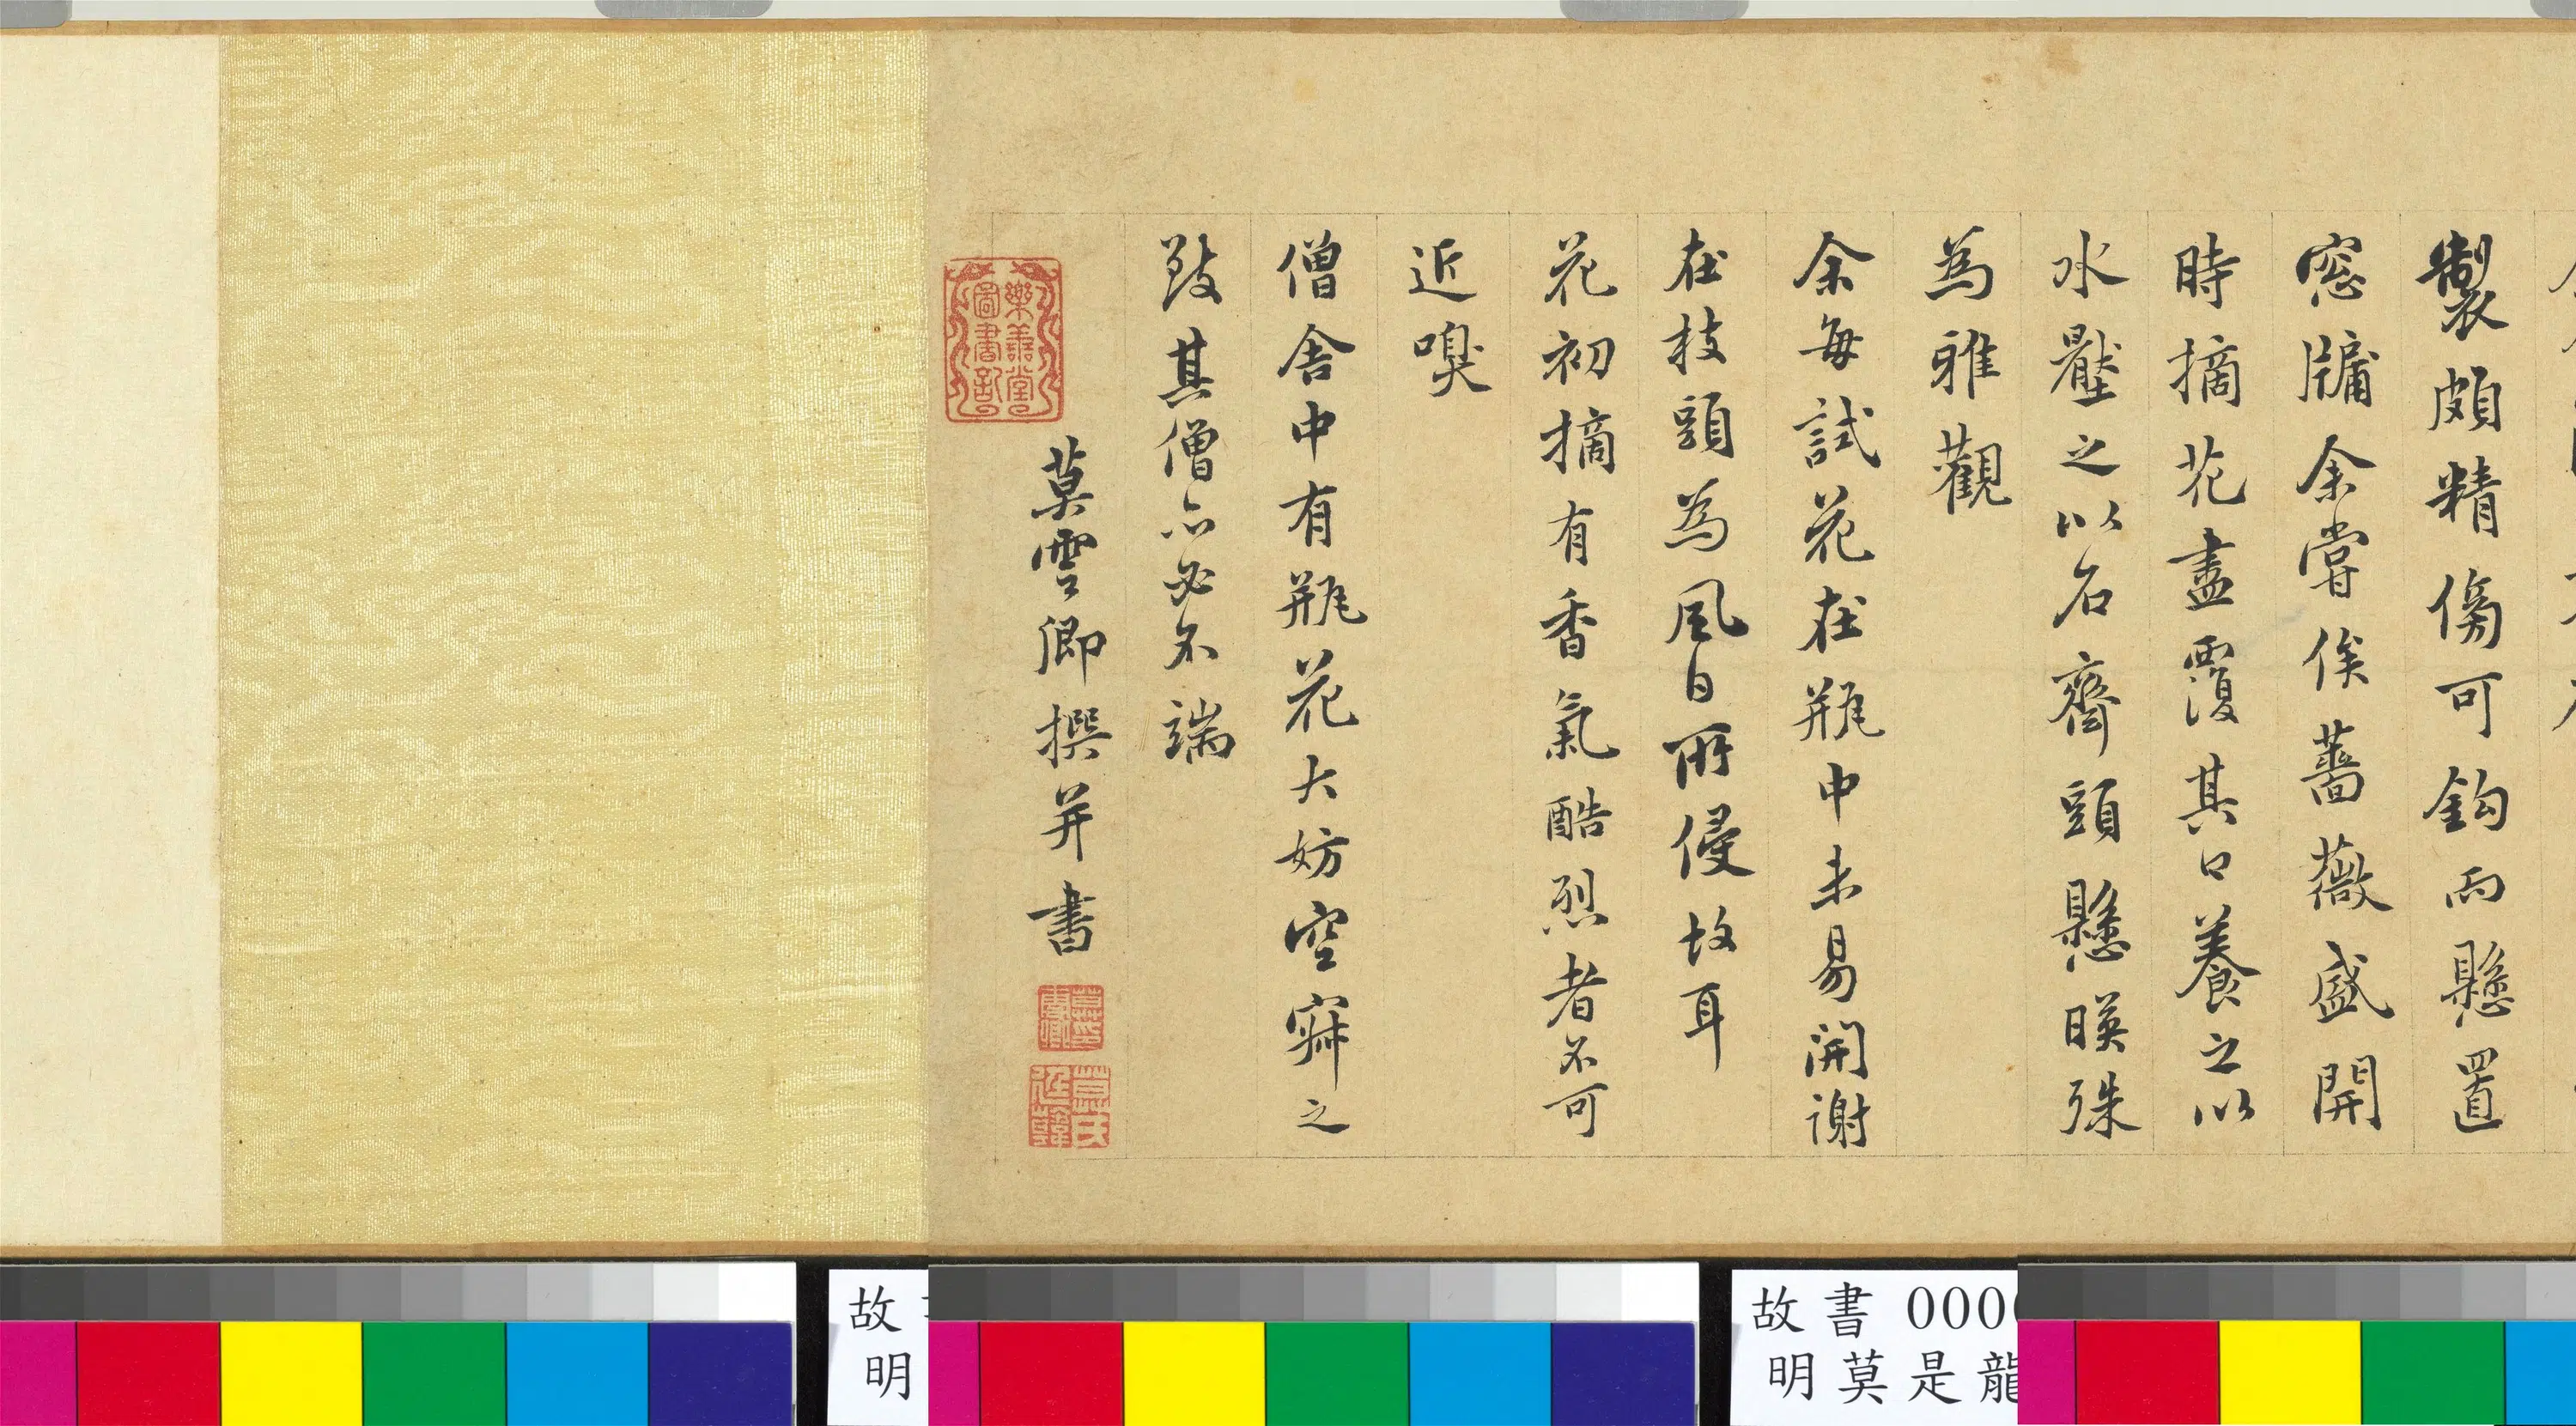 製頗精傍可鈎而懸置
窓牖余嘗俟薔薇盛開
時摘花盡覆其口養之以
水壂之以石齊頭懸暎殊
為雅觀
余每試花在瓶中未易開謝
在枝頭為風日所侵故耳
花初摘有香氣酷烈者不可
近嗅
僧舍中有瓶花大妨空寂之
致其僧亦必不端
莫雲卿撰并書
樂善堂
圖書記
莫氏
廷韓
故
明
故書 000
明莫是龍